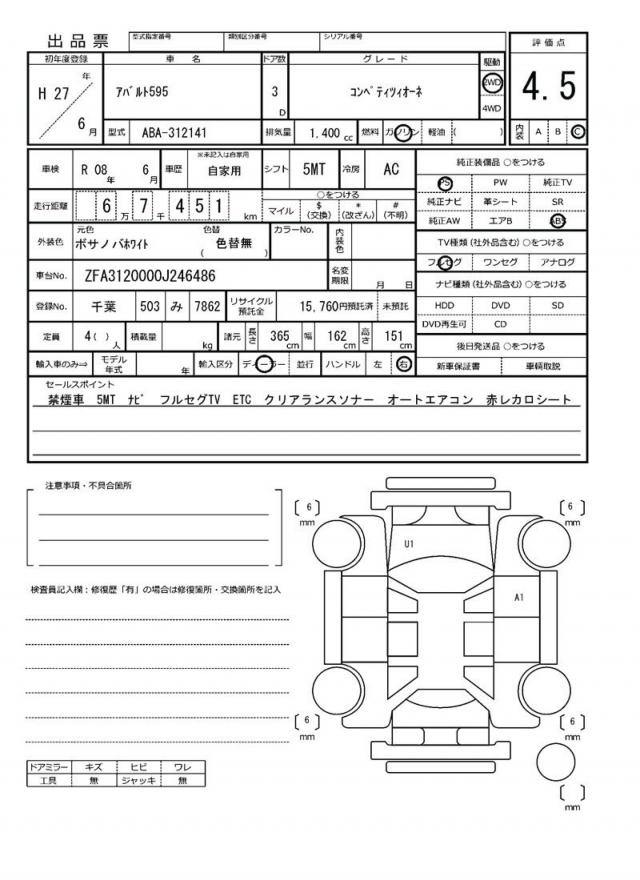 出品票
型式指定番号 類別区分番号 シリアル番号
評価点
初年度登録 車名 ドア数 グレード 駆動
H 27 年 6 月
アバルト595
3 D
コンペティツィオーネ
2WD
4WD
4.5
型式 ABA-312141 排気量 1.400 cc 燃料 ガソリン 軽油 ( )
内装 A B C
車検 R 08 年 6 月 車歴 ※未記入は自家用 自家用 シフト 5MT 冷房 AC
走行距離 6 万 7 千 4 5 1 km
○をつける
マイル $(交換) *(改ざん) #(不明)
外装色 元色 ボサノバホワイト 色替 ( 色替無 ) カラーNo. 内装色
車台No. ZFA3120000J246486 名変期限 月 日
登録No. 千葉 503 み 7862 リサイクル預託金 15,760円預託済 未預託
定員 4( ) 人 積載量 kg 諸元 長さ 365 cm 幅 162 cm 高さ 151 cm
輸入車のみ⇒ モデル年式 年 輸入区分 ディーラー 並行 ハンドル 左 右
純正装備品 ○をつける
PS PW 純正TV
純正ナビ 革シート SR
純正AW エアB ABS
TV種類(社外品含む)○をつける
フルセグ ワンセグ アナログ
ナビ種類(社外品含む)○をつける
HDD DVD SD
DVD再生可 CD
後日発送品 ○をつける
新車保証書 車輌取説
セールスポイント
禁煙車 5MT ナビ フルセグTV ETC クリアランスソナー オートエアコン 赤レカロシート
注意事項・不具合箇所
検査員記入欄:修復歴「有」の場合は修復箇所・交換箇所を記入
ドアミラー キズ ヒビ ワレ
工具 無 ジャッキ 無
[ 6 ] mm
[ 6 ] mm
U1
A1
[ 6 ] mm
[ 6 ] mm
[ ] mm